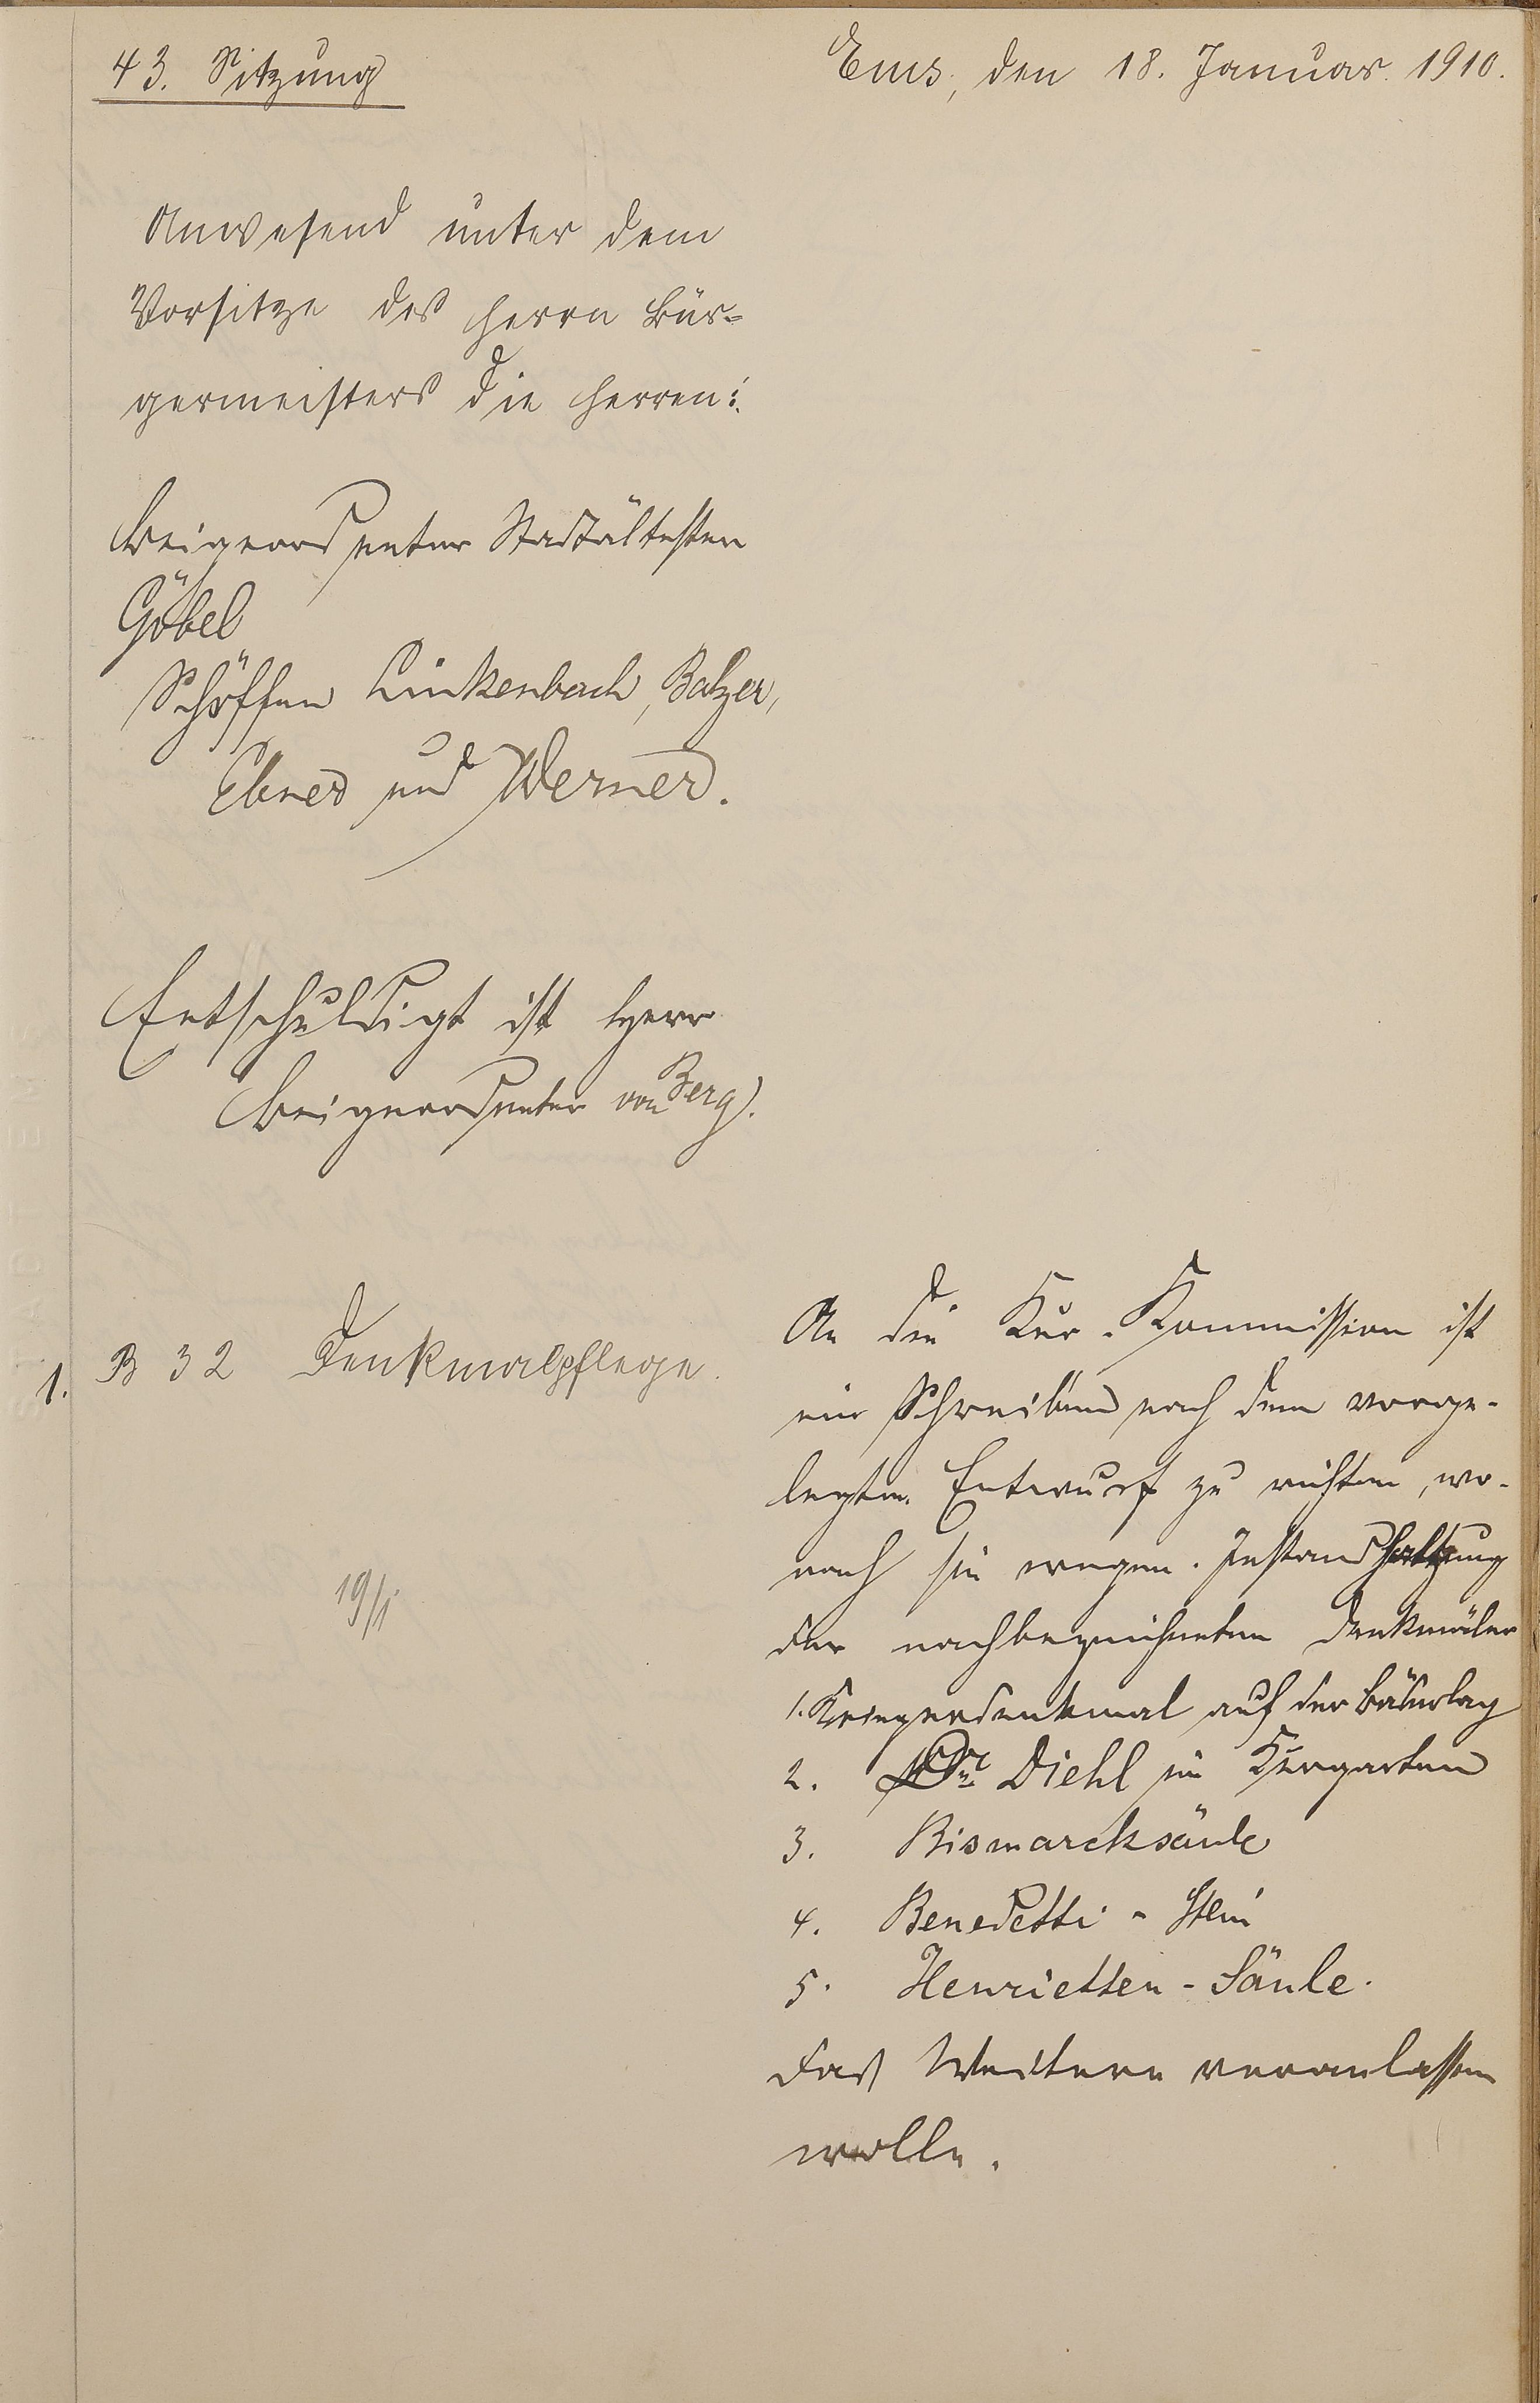 43. Sitzung
Ems, den 18. Januar 1910.
Anwesend unter dem
Vorsitze des Herrn Bür-
germeisters die Herren:
Beigeordneter Stadtältesten
Göbel
Schöffen Linkenbach, Balzer,
Ebner und Werner.
Entschuldigt ist Herr
Beigeordneter von Berg.
1. B 32 Denkmalpflege.
19/1
An die Kur-Kommission ist
ein Schreiben nach dem vorge-
legten Entwurf zu richten, wo-
nach sie wegen Instandhaltung
der nachbezeichneten Denkmäler
1. Kriegerdenkmal auf der Bäderlay
2. Dr Diehl im Kurgarten
3. Bismarcksäule
4. Benedetti-Stein
5. Henrietten-Säule.
das Weitere veranlassen
wolle.